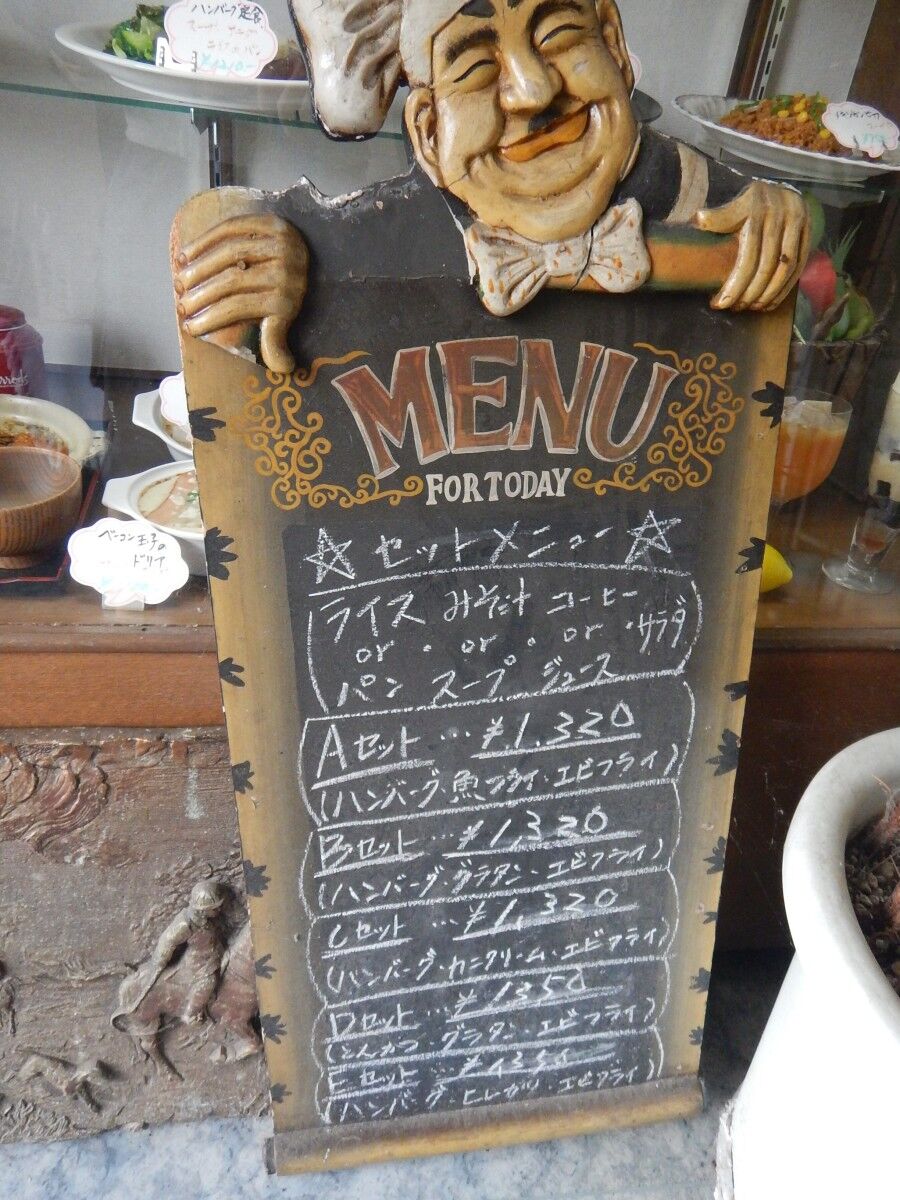 ハンバーグ定食
MENU
FOR TODAY
ベーコン玉子の
ドリア
☆セットメニュー☆
ライス みそ汁 コーヒー
or ・ or ・ or ・サラダ
パン スープ ジュース
Aセット…¥1,320
(ハンバーグ・魚フライ・エビフライ)
Bセット…¥1,320
(ハンバーグ・グラタン・エビフライ)
Cセット…¥1,320
(ハンバーグ・カニクリーム・エビフライ)
Dセット…¥1350
(とんかつ・グラタン・エビフライ)
Eセット…
(ハンバーグ・ヒレカツ・エビフライ)